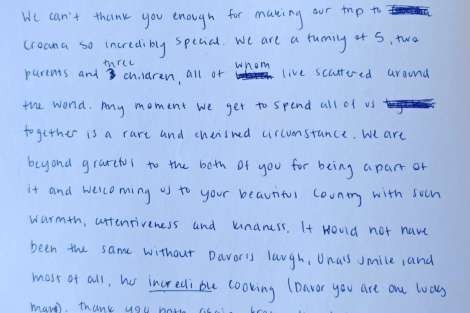 We can't thank you enough for making our trip to
Croatia so incredibly special. We are a family of 5, two
parents and three children, all of whom live scattered around
the world. Any moment we get to spend all of us
together is a rare and cherished circumstance. We are
beyond grateful to the both of you for being a part of
it and welcoming us to your beautiful country with such
warmth, attentiveness and kindness. It would not have
been the same without Davor's laugh, Una's smile, and
most of all, her incredible cooking (Davor you are one lucky
man). Thank you both